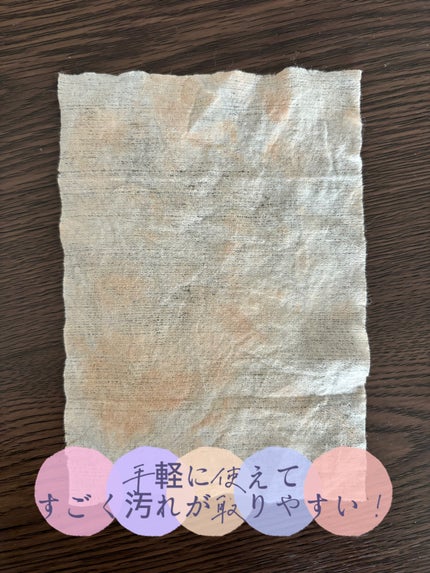 手軽に使えて
すごく汚れが取りやすい！